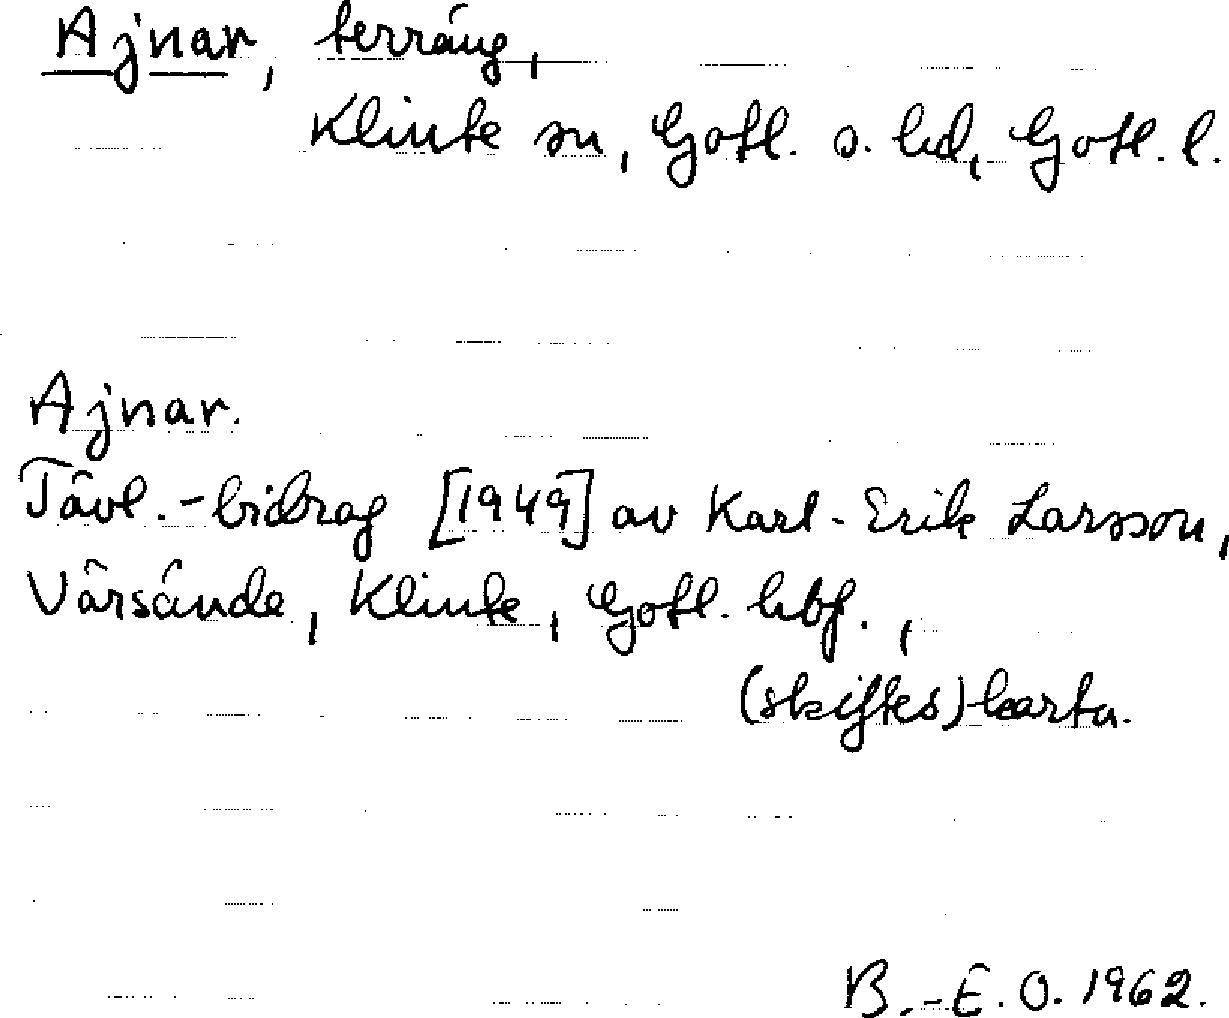 Ajnar, terräng,
Klinte sn, Gotl. s. hd, Gotl. l.
Ajnar.
Tävl.-bidrag [1949] av Karl-Erik Larsson,
Värsände, Klinte, Gotl. hbf.,
(skiftes)karta.
B.-E. O. 1962.